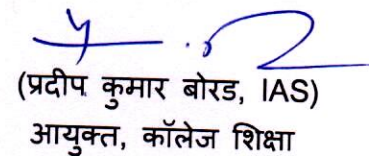 (प्रदीप कुमार बोरड, IAS)
आयुक्त, कॉलेज शिक्षा